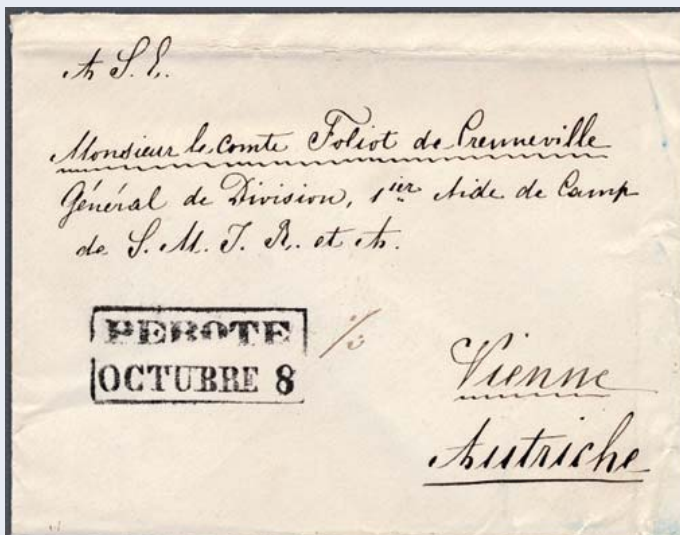 A S. E.
Monsieur le comte Foliot de Crenneville
Général de Division, 1ier Aide de Camp
de S. M. I. R. et A.
PEROTE
OCTUBRE 8
Vienne
Autriche